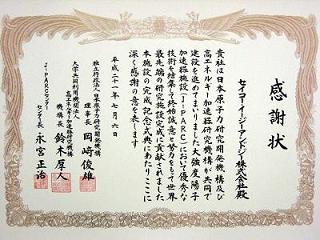 感謝状
セイコー・イージーアンドジー株式会社殿
貴社は日本原子力研究開発機構及び
高エネルギー加速器研究機構が共同で
建設を進めてまいりました大強度陽子
加速器施設(J-PARC)において優秀な
技術を結集して終始誠意と努力をもって世界
最先端の研究施設完成に貢献されました
本施設の完成記念式典にあたりここに
深く感謝の意を表します
平成二十一年七月六日
独立行政法人日本原子力研究開発機構
理事長 岡﨑俊雄
大学共同利用機関法人
高エネルギー加速器研究機構
機構長 鈴木厚人
J-PARCセンター
センター長 永宮正治